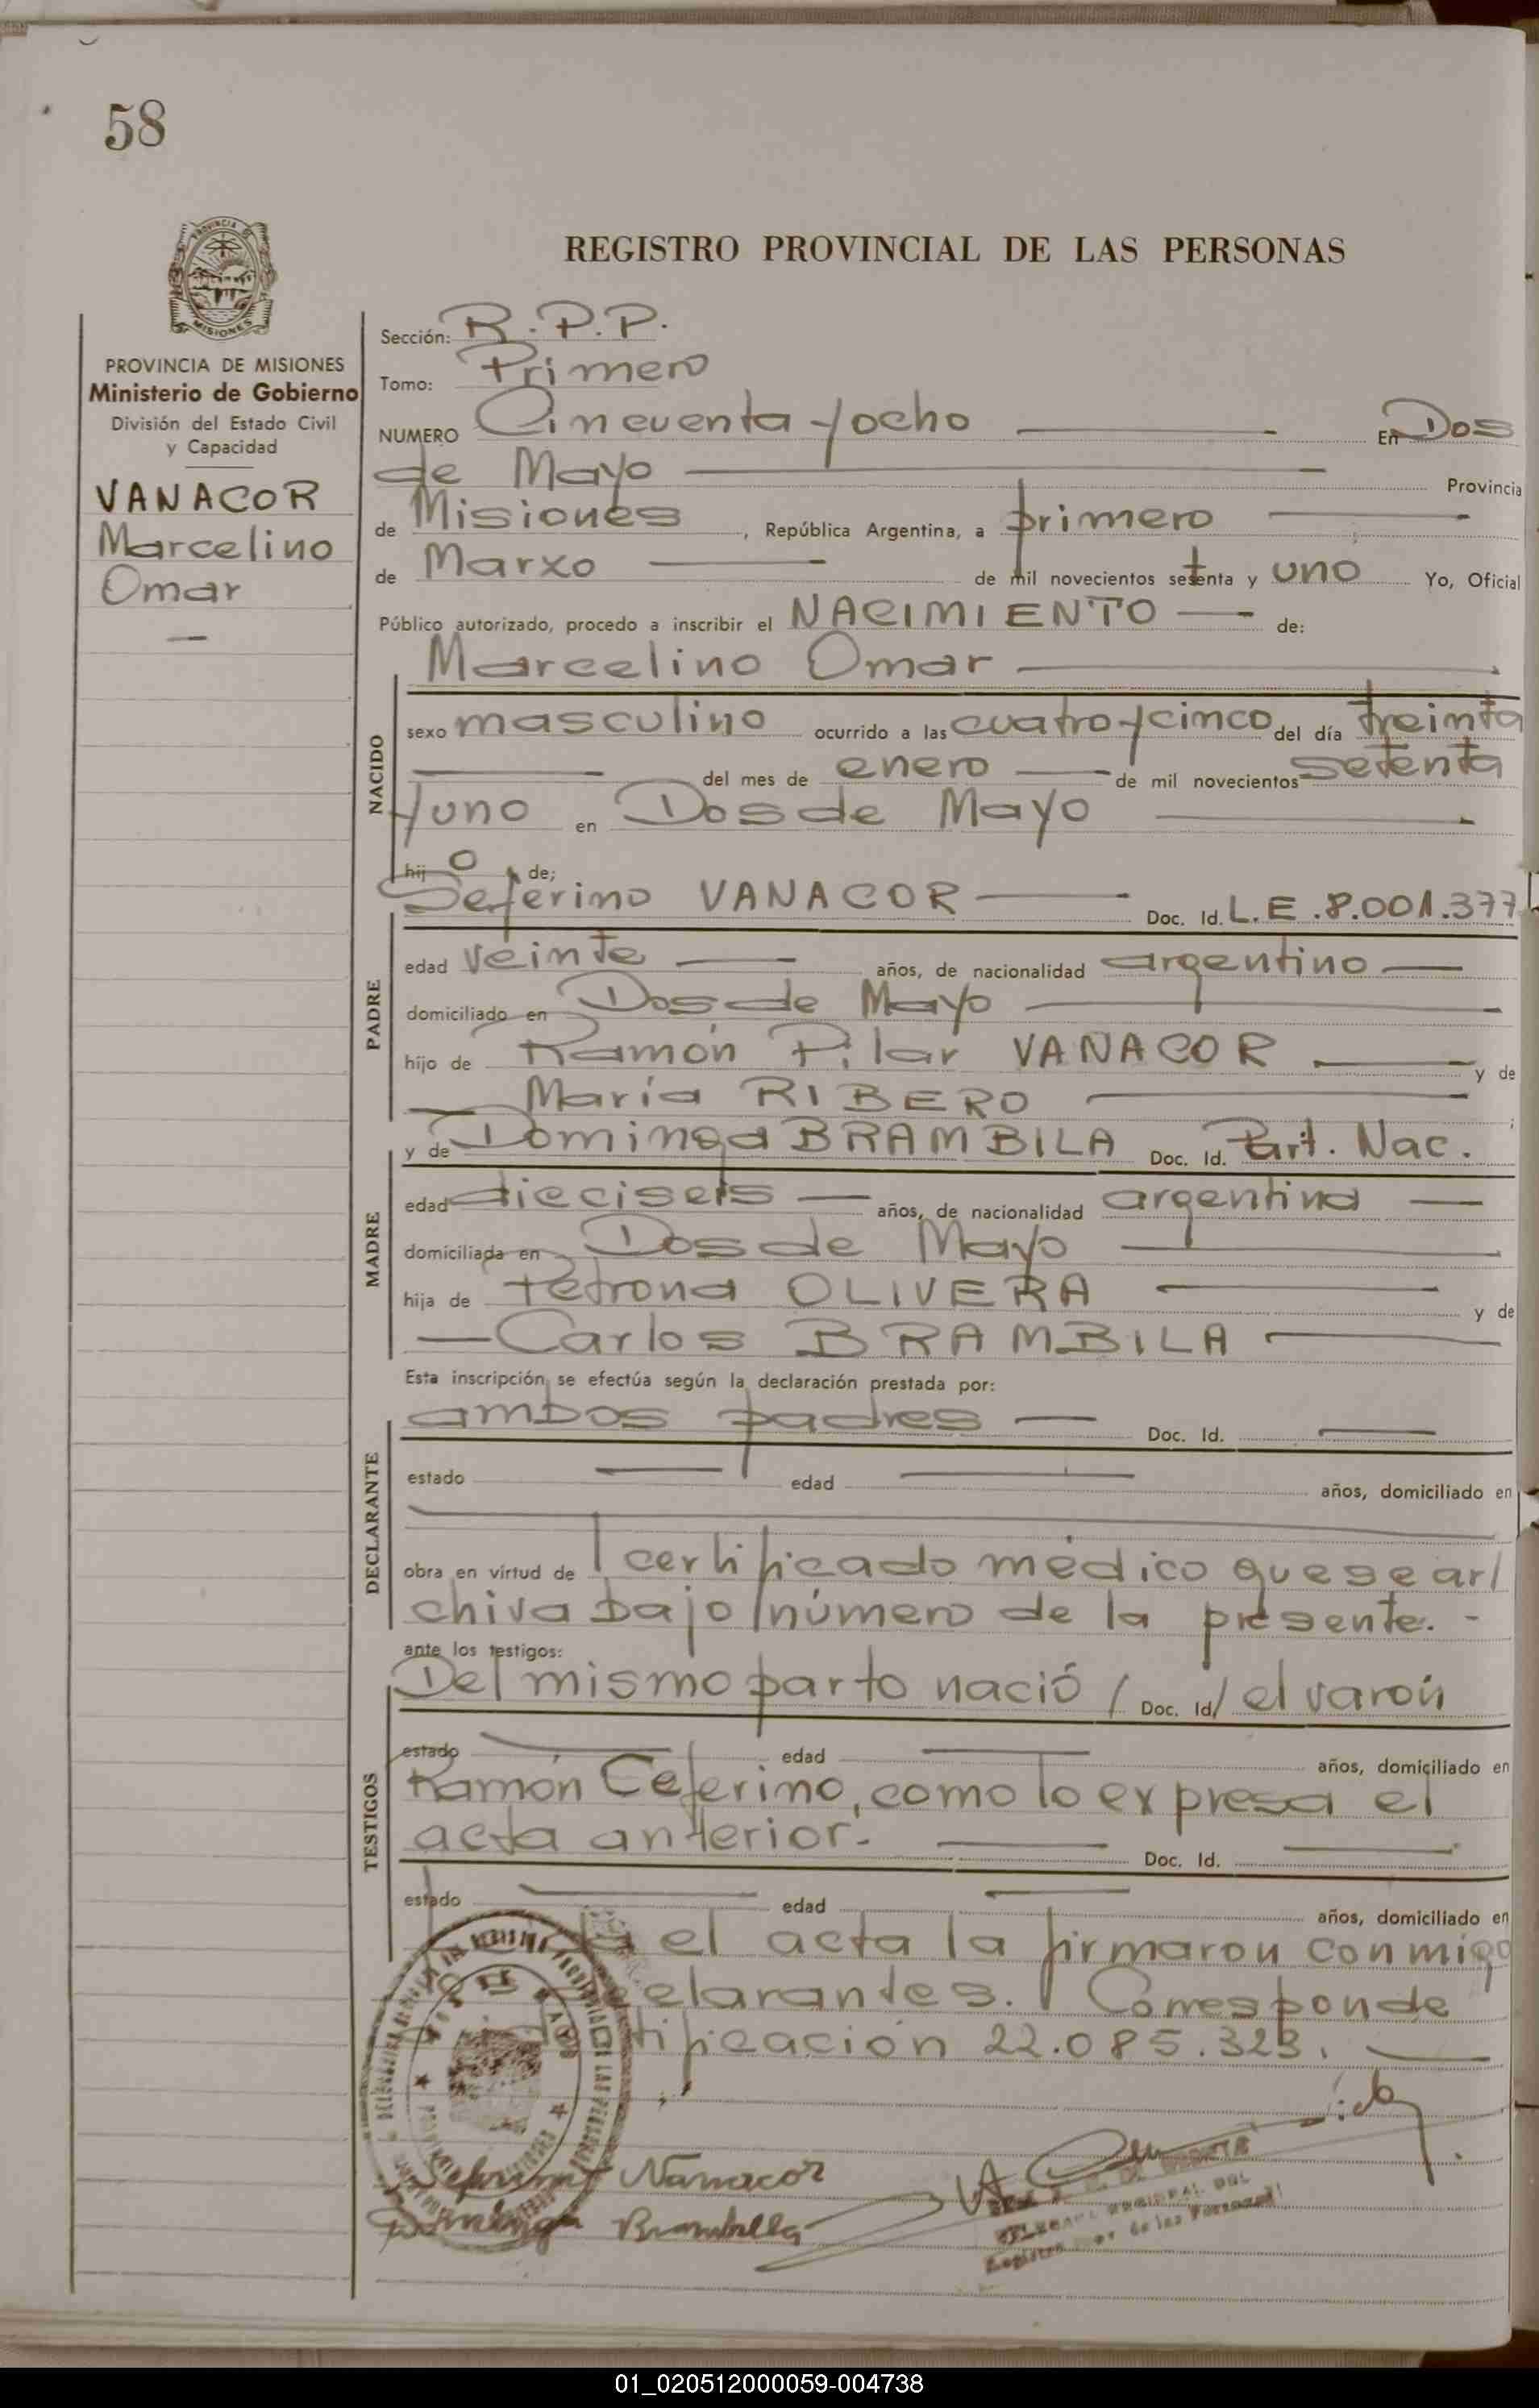 58
PROVINCIA DE MISIONES
Ministerio de Gobierno
División del Estado Civil
y Capacidad
VANACOR
Marcelino
Omar
REGISTRO PROVINCIAL DE LAS PERSONAS
Sección: R.P.P.
Tomo: Primero
NUMERO Cincuenta y ocho En Dos
de Mayo Provincia
de Misiones, República Argentina, a primero
de Marxo de mil novecientos setenta y uno Yo, Oficial
Público autorizado, procedo a inscribir el NACIMIENTO de:
Marcelino Omar
NACIDO
sexo masculino ocurrido a las cuatro y cinco del día treinta
del mes de enero de mil novecientos setenta
y uno en Dos de Mayo
hijo de;
Seferino VANACOR Doc. Id. L.E.8.001.377
PADRE
edad veinte años, de nacionalidad argentino
domiciliado en Dos de Mayo
hijo de Ramón Pilar VANACOR y de
María RIBERO
y de Dominga BRAMBILA Doc. Id. Part. Nac.
MADRE
edad dieciseis años, de nacionalidad argentina
domiciliada en Dos de Mayo
hija de Petrona OLIVERA y de
Carlos BRAMBILA
Esta inscripción se efectúa según la declaración prestada por:
ambos padres Doc. Id.
DECLARANTE
estado edad años, domiciliado en
obra en virtud de certificado médico que se ar/
chiva bajo número de la presente.-
ante los testigos:
Del mismo parto nació / Doc. Id/ el varón
TESTIGOS
estado edad años, domiciliado en
Ramón Ceferino, como lo expresa el
acta anterior.- Doc. Id.
estado edad años, domiciliado en
el acta la firmaron conmigo
clarantes. Corresponde
tificación 22.085.323.
Vanacor
Dominga Brambilla
01_020512000059-004738